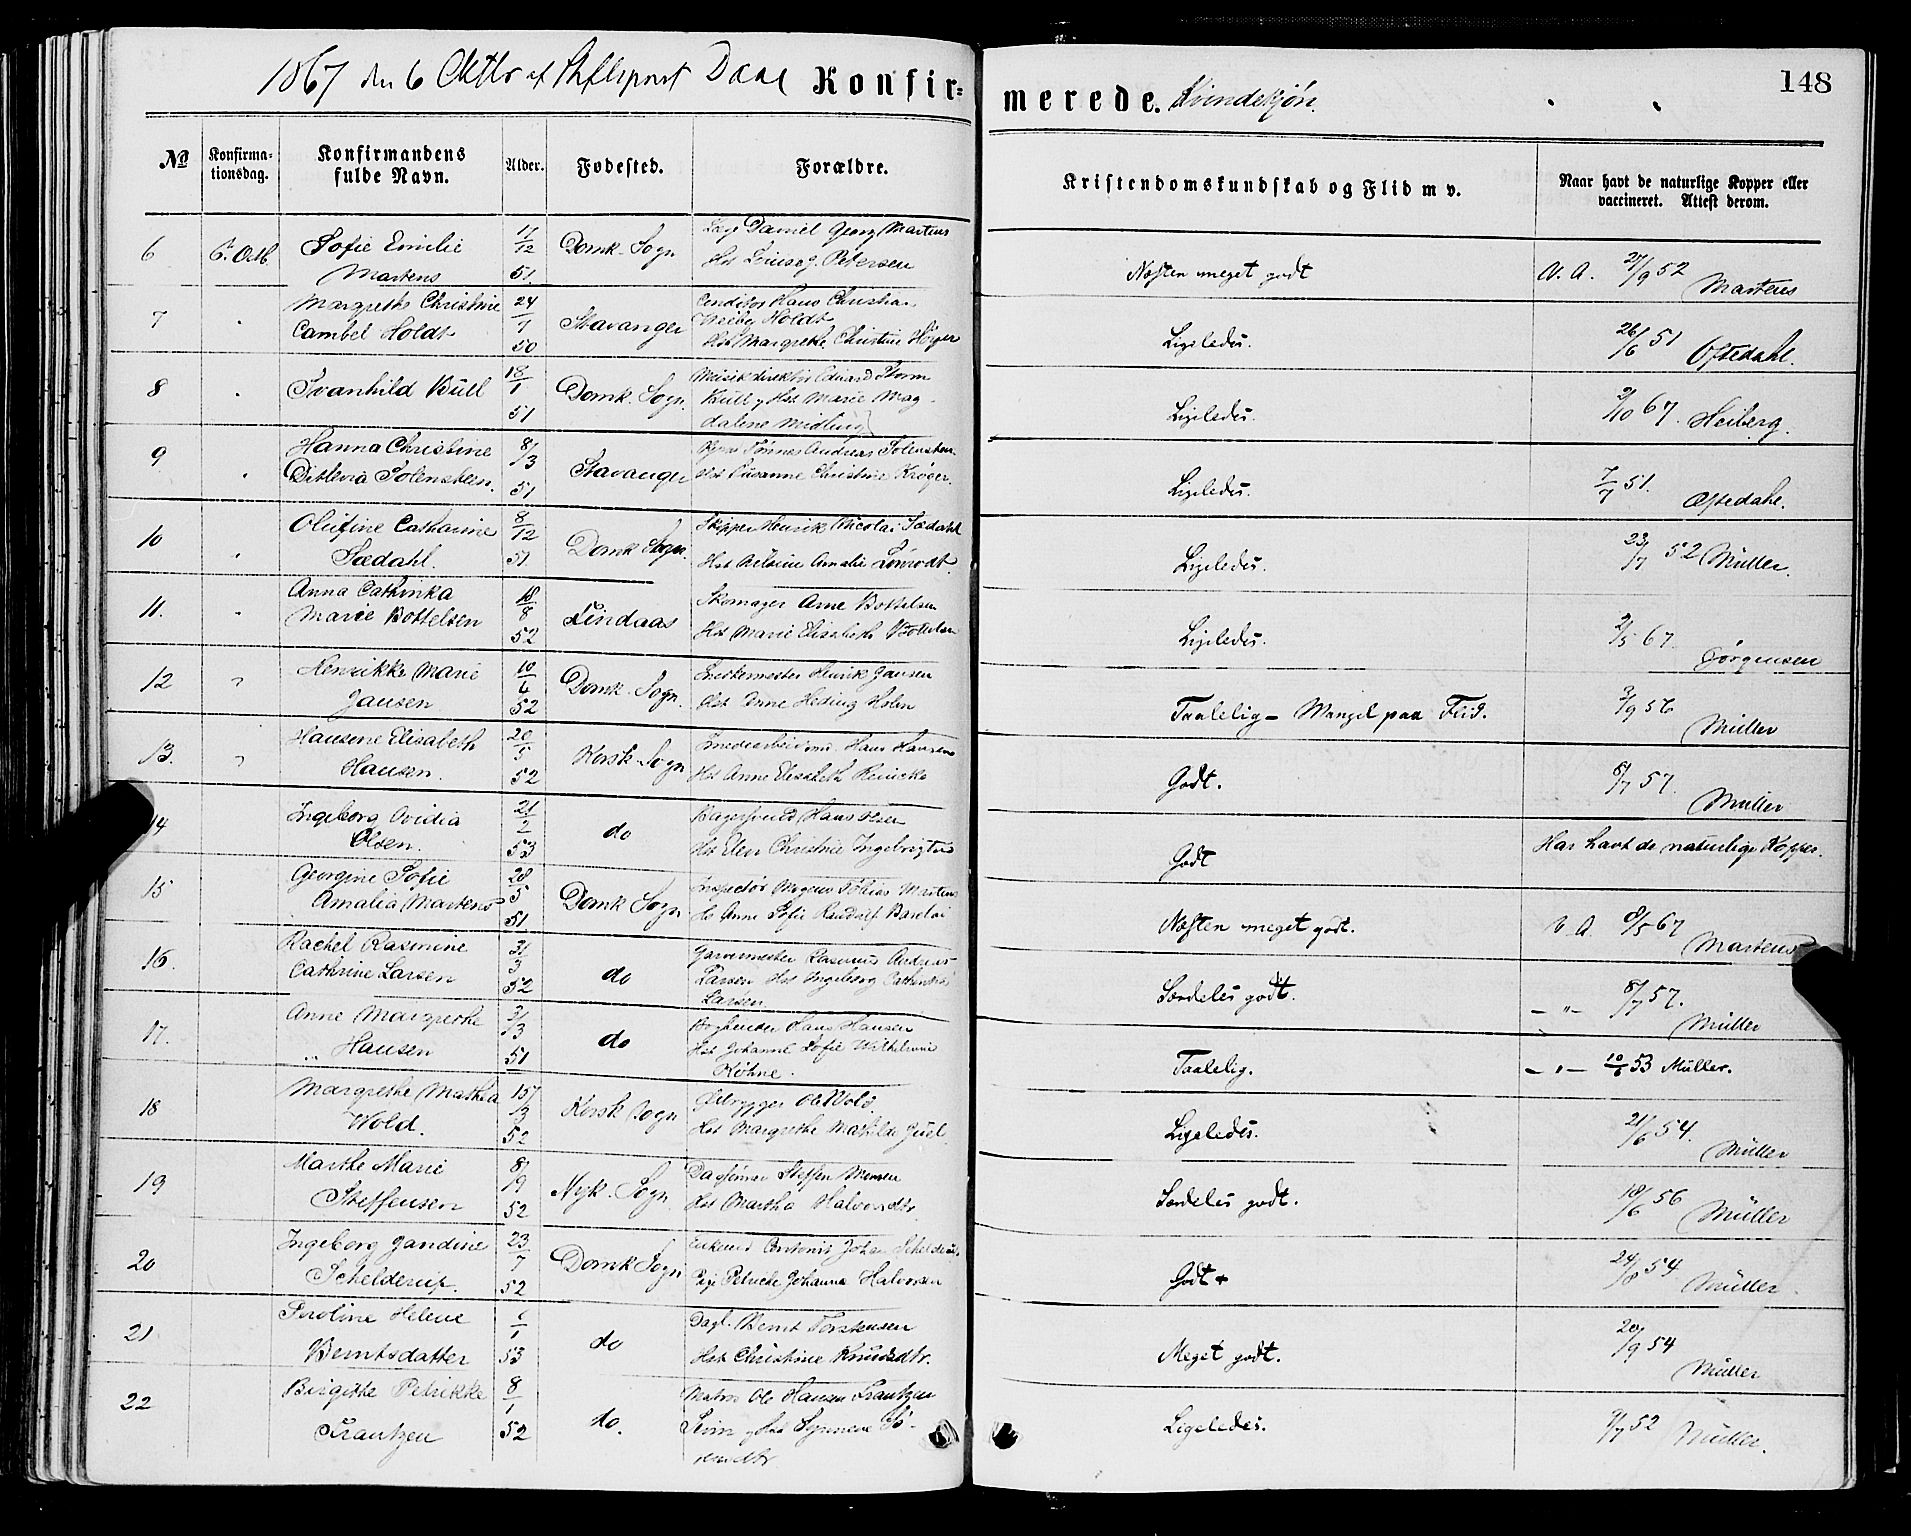 1867 den 6 Oktbr af Stiftsprovst Daae Konfir-
merede. Kvindekjøn.
148
No
Konfirma-
tionsdag.
Konfirmandens
fulde Navn.
Alder.
Fødested.
Forældre.
Kristendomskundskab og Flid m v.
Naar havt de naturlige Kopper eller
vaccineret. Attest derom.
6 6. Octb. Sofie Emilie
Martens
17/12 51. Domk. Sogn
Daniel Georg Martens
Petersen
Næsten meget godt V. A. 27/9 52 Martens
7 Margrethe Christine
Cambel Holdt
24/7 50 Stavanger
Conditor Hans Christian
Holdt
Hst Margrethe Christine Höyer
Ligeledes. 26/6 51 Oftedahl.
8 Svanhild Bull
18/1 51 Domk. Sogn.
Musikdirektör Edvard Storm
Bull og Hst Marie Mag-
dalene Midling
Ligeledes. 2/10 67. Heiberg.
9 Hanna Christine
Ditlevia Solensteen.
8/3 51 Stavanger
Tønnes Andreas Solensteen
Hst Susanne Christine Kröger
Ligeledes. 7/7 51. Oftedahl.
10 Olufine Catharine
Sædahl.
8/12 51 Domk Sogn.
Skipper Henrik Nicolai Sædahl
Hst Amalie
Ligeledes. 23/7 52 Müller.
11. Anna Cathinka
Marie Bottelsen
18/8 52 Lindaas
Skomager Arne Bottelsen
Hst Marie Elisabeth Bottelsen
Ligeledes. 2/5 67. Jörgensen
12 " Henrikke Marie
Jansen
10/4 52 Domk. Sogn.
Henrik Jansen
Hst Holm
Taalelig - Mangel paa Flid. 3/9 56 Müller
13. " Hansene Elisabeth
Hansen.
20/5 52 Korsk. Sogn
Hans Hansen
Hst Anne Elisabeth Reincke
Godt. 8/7 57. Müller
14 Ingeborg Ovidia
Olsen.
21/2 53 do
Hans Olsen
Hst Elen Christine Ingebrigtsd
Godt Har havt de naturlige Kopper.
15 Georgine Sofie
Amalia Martens
28/5 51 Domk Sogn
Inspectör Mogens Tobias Martens
Anne Sofie
Næsten meget godt. V. A 8/5 67 Martens
16. Rachel Rasmine
Cathrine Larsen
31/3 52 do
Garvermester Rasmus Andreas
Larsen Hst Ingeborg Cathrine
Larsen
Særdeles godt. - " - 8/7 57. Müller
17. Anne Margrethe
Hansen
31/3 51 do
Hans Hansen
Hst Johanne Sofie Wilhelmine
Köhne.
Taalelig. - " - 10/6 53 Müller.
18 Margrethe Mathea
Wold.
15/3 52 Korsk Sogn
Ølbrygger Ole Wold.
Hst Margrethe Mathilde Juel
Ligeledes. 21/6 54. Müller
19 Marthe Marie
Steffensen
8/9 52 Nyk. Sogn
Steffen Monsen
Hst Martha Halvorsdtr
Særdeles godt. 18/6 56 Müller
20 Ingeborg Jandine
Schelderup.
23/7 52 Domk Sogn
Enkemd Antonis Johan Schelderup
Pige Petricke Johanne Halvorsen
Godt + 24/8 54 Müller.
21 Seroline Helene
Berntsdatter
6/1 53 do
Dagl. Bernt Torstensen
Hst Christine Knudsdtr.
Meget godt. 20/9 54 Müller
22 Birgitte Petrikke
Frantzen
8/1 52 do.
Matros Ole Hansen Frantzen
Hst Synneve
Ligeledes. 9/7 52 Müller.